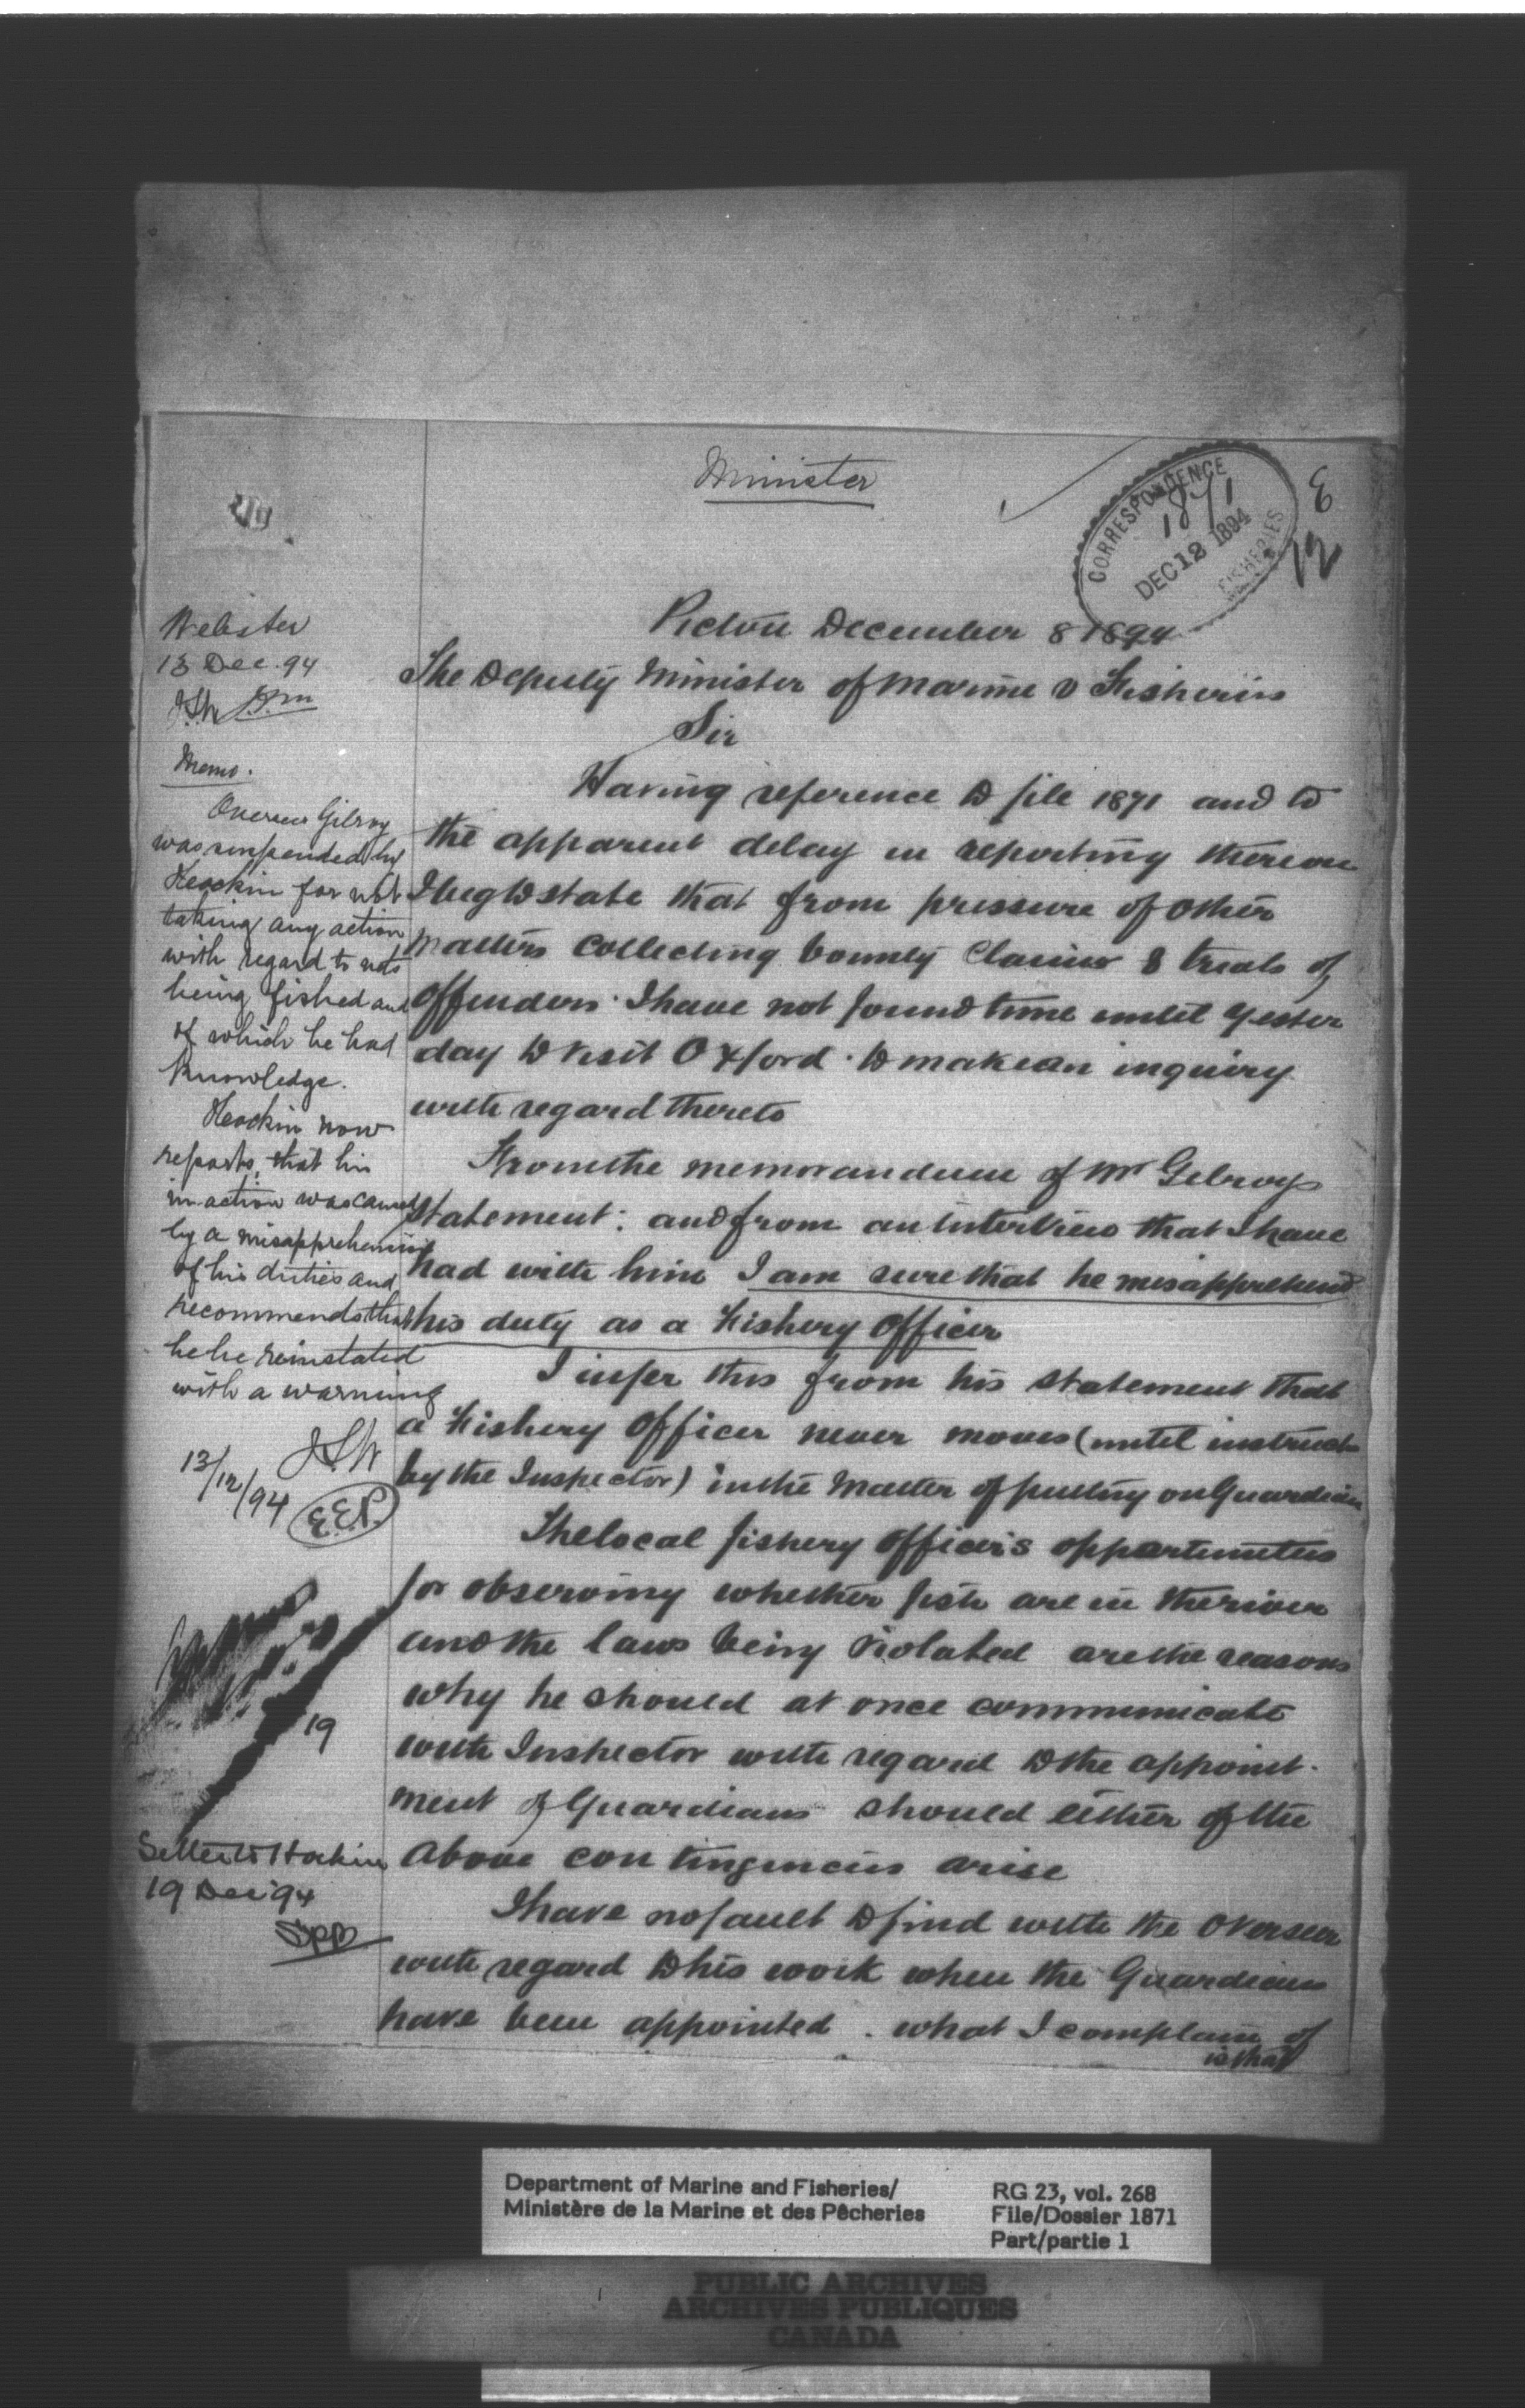 Minister
CORRESPONDENCE
1871
DEC 12 1894
FISHERIES
E
12
Pictou December 8 1894
The Deputy Minister of Marine & Fisheries
Sir
Having reference to file 1871 and to
the apparent delay in reporting thereon
I beg to state that from pressure of other
matters collecting bounty Claims & trials of
offenders. I have not found time until yester
day to visit Oxford. to make an inquiry
with regard thereto
From the memorandum of Mr Gilroys
statement: and from an interview that I have
had with him I am sure that he misapprehend
his duty as a Fishery Officer
I infer this from his statement that
a Fishery Officer never moves (until instruct
by the Inspector) in the matter of putting on Guardian
The local fishery officer's oppertunities
for observing whether fish are in the river
and the laws being violated are the reasons
why he should at once communicate
with Inspector with regard to the appoint-
ment of Guardians should either of the
above contingencies arise
I have no fault to find with the Overseer
with regard to his work when the Guardians
have been appointed. what I complain of
is that
Webster
13 Dec. 94
Memo.
Overseer Gilroy
was suspended by
Hockin for not
taking any action
with regard to nets
being fished and
of which he had
knowledge.
Hockin now
reports, that his
in-action was caused
by a misapprehension
of his duties and
recommends that
he be reinstated
with a warning
13/12/94
E.E.P.
19
Letter to Hockin
19 Dec '94
Department of Marine and Fisheries/
Ministère de la Marine et des Pêcheries
RG 23, vol. 268
File/Dossier 1871
Part/partie 1
PUBLIC ARCHIVES
ARCHIVES PUBLIQUES
CANADA